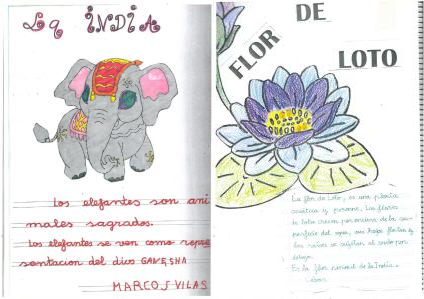 La INDIA
Los elefantes son ani
males sagrados.
Los elefantes se ven como repre
sentacion del dios GANESHA
MARCOS VILAS
FLOR DE
LOTO
La flor de Loto, es una planta
acuática y perenne. Las flores
de loto crecen por encima de la su-
perficie del agua, sus hojas flotan y
las raices se sujetan al suelo por
debajo.
Es la flor nacional de la India.